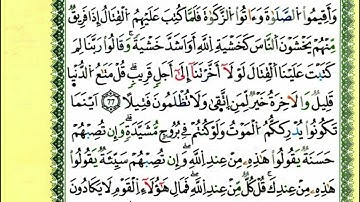 وَأَقِيمُوا۟ الصَّلَوٰةَ وَءَاتُوا۟ الزَّكَوٰةَ فَلَمَّا كُتِبَ عَلَيْهِمُ الْقِتَالُ إِذَا فَرِيقٌ
مِّنْهُمْ يَخْشَوْنَ النَّاسَ كَخَشْيَةِ اللَّهِ أَوْ أَشَدَّ خَشْيَةً ۚ وَقَالُوا۟ رَبَّنَا لِمَ
كَتَبْتَ عَلَيْنَا الْقِتَالَ لَوْلَآ أَخَّرْتَنَآ إِلَىٰٓ أَجَلٍ قَرِيبٍ ۗ قُلْ مَتَٰعُ الدُّنْيَا
قَلِيلٌ وَالْءَاخِرَةُ خَيْرٌ لِّمَنِ اتَّقَىٰ وَلَا تُظْلَمُونَ فَتِيلًا ۝٧٧ أَيْنَمَا
تَكُونُوا۟ يُدْرِككُّمُ الْمَوْتُ وَلَوْ كُنتُمْ فِى بُرُوجٍ مُّشَيَّدَةٍ ۗ وَإِن تُصِبْهُمْ
حَسَنَةٌ يَقُولُوا۟ هَٰذِهِۦ مِنْ عِندِ اللَّهِ ۖ وَإِن تُصِبْهُمْ سَيِّئَةٌ يَقُولُوا۟
هَٰذِهِۦ مِنْ عِندِكَ ۚ قُلْ كُلٌّ مِّنْ عِندِ اللَّهِ ۖ فَمَالِ هَٰٓؤُلَآءِ الْقَوْمِ لَا يَكَادُونَ